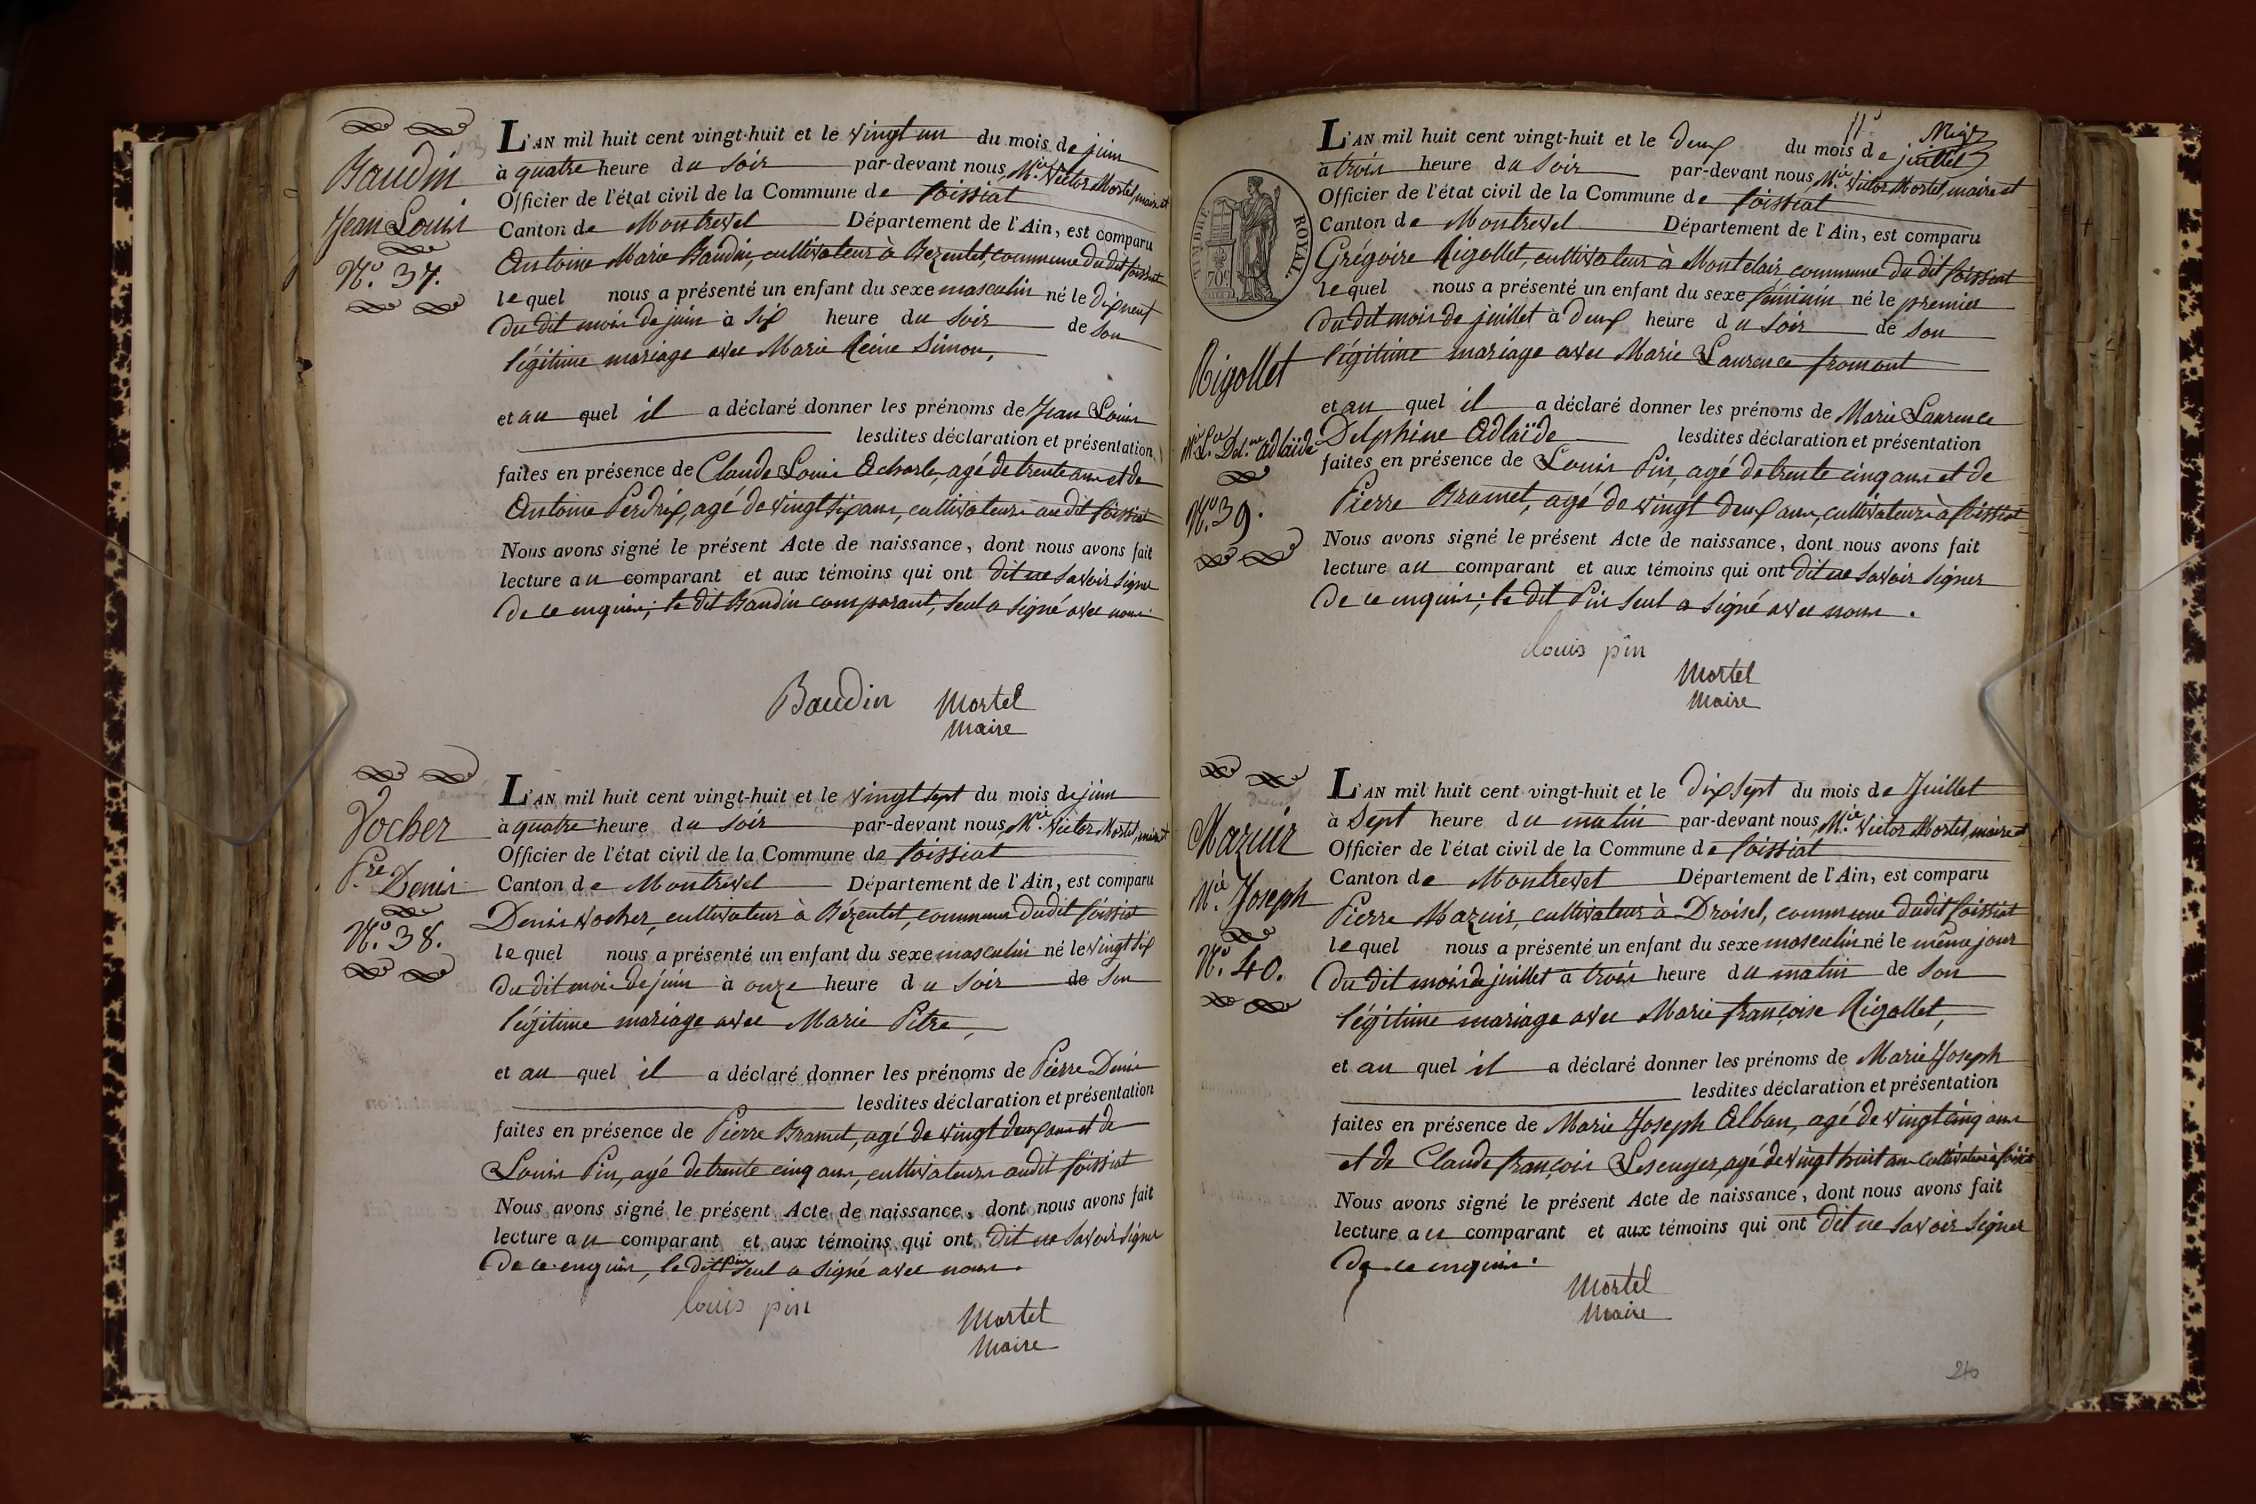 Baudin
Jean Louis
N.º 37.
L'AN mil huit cent vingt-huit et le vingt un du mois de juin
à quatre heure du soir par-devant nous, M.ie Victor Mortel, maire et
Officier de l'état civil de la Commune de foissiat
Canton de Montrevel Département de l'Ain, est comparu
Antoine Marie Baudin, cultivateur à Bezentet, commune du dit foissiat
lequel nous a présenté un enfant du sexe masculin né le dix neuf
du dit mois de juin à six heure du soir de son
légitime mariage avec Marie Reine Simon,
et au quel il a déclaré donner les prénoms de Jean Louis
lesdites déclaration et présentation
faites en présence de Claude Louis agé de trente ans et de
Antoine Perdrix, agé de vingt six ans, cultivateurs au dit foissiat
Nous avons signé le présent Acte de naissance, dont nous avons fait
lecture au comparant et aux témoins qui ont dit ne savoir signer
de ce enquis; le dit Baudin comparant, seul a signé avec nous.
Baudin Mortel
Maire
Vocher
P.re Denis
N.º 38.
L'AN mil huit cent vingt-huit et le vingt sept du mois de juin
à quatre heure du soir par-devant nous, M.ie Victor Mortel, maire et
Officier de l'état civil de la Commune de foissiat
Canton de Montrevel Département de l'Ain, est comparu
Denis Vocher, cultivateur à Bézentet, commune dudit foissiat
lequel nous a présenté un enfant du sexe masculin né le vingt six
du dit mois de juin à onze heure du soir de son
légitime mariage avec Marie Pitre,
et au quel il a déclaré donner les prénoms de Pierre Denis
lesdites déclaration et présentation
faites en présence de Pierre Bramet, agé de vingt deux ans et de
Louis Pin, agé de trente cinq ans, cultivateurs audit foissiat
Nous avons signé le présent Acte de naissance, dont nous avons fait
lecture au comparant et aux témoins qui ont dit ne savoir signer
de ce enquis, le dit Pin seul a signé avec nous.
louis pin Mortel
Maire
TIMBRE ROYAL
70c
Rigollet
M.ie L.ce Del.ne adlaïde
N.º 39.
L'AN mil huit cent vingt-huit et le deux du mois de juillet
à trois heure du soir par-devant nous, M.ie Victor Mortel, maire et
Officier de l'état civil de la Commune de foissiat
Canton de Montrevel Département de l'Ain, est comparu
Grégoire Rigollet, cultivateur à Montclair commune du dit foissiat
lequel nous a présenté un enfant du sexe féminin né le premier
du dit mois de juillet à deux heure du soir de son
légitime mariage avec Marie Laurence fromont
et au quel il a déclaré donner les prénoms de Marie Laurence
Delphine Adlaïde lesdites déclaration et présentation
faites en présence de Louis Pin, agé de trente cinq ans et de
Pierre Bramet, agé de vingt deux ans, cultivateurs à foissiat
Nous avons signé le présent Acte de naissance, dont nous avons fait
lecture au comparant et aux témoins qui ont dit ne savoir signer
de ce enquis; le dit Pin seul a signé avec nous.
louis pin
Mortel
Maire
Mazuir
M.ie Joseph
N.º 40.
L'AN mil huit cent vingt-huit et le dix sept du mois de Juillet
à sept heure du matin par-devant nous, M.ie Victor Mortel, maire et
Officier de l'état civil de la Commune de foissiat
Canton de Montrevel Département de l'Ain, est comparu
Pierre Mazuir, cultivateur à Droisel, commune dudit foissiat
lequel nous a présenté un enfant du sexe masculin né le même jour
du dit mois de juillet à trois heure du matin de son
légitime mariage avec Marie françoise Rigollet,
et au quel il a déclaré donner les prénoms de Marie Joseph
lesdites déclaration et présentation
faites en présence de Marie Joseph Alban, agé de vingt cinq ans
et de Claude françois Lescuyer, agé de vingt huit ans cultivateurs à foissiat
Nous avons signé le présent Acte de naissance, dont nous avons fait
lecture au comparant et aux témoins qui ont dit ne savoir signer
de ce enquis.
Mortel
Maire